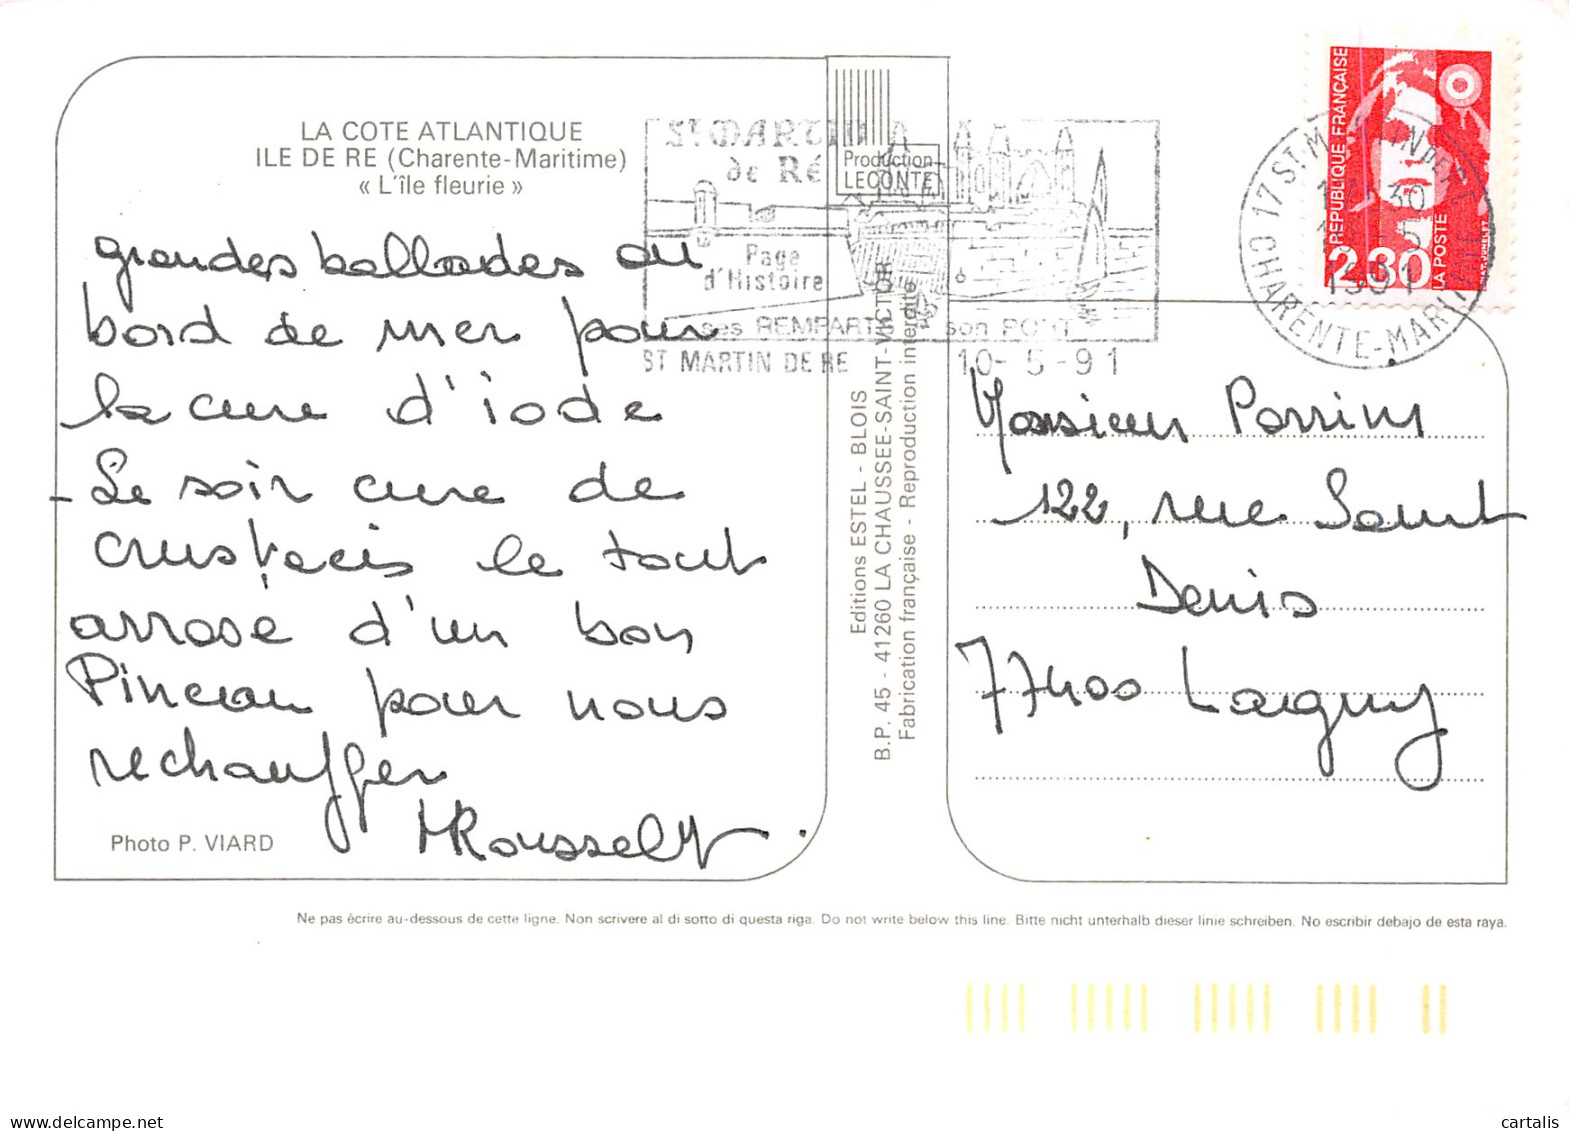 LA COTE ATLANTIQUE
ILE DE RE (Charente-Maritime)
« L'île fleurie »
grandes ballades au
bord de mer pour
la cure d'iode
- Le soir cure de
crustacés le tout
arrosé d'un bon
Pineau pour nous
rechauffer
Photo P. VIARD
Production
LECONTE
ST MARTIN
de Ré
Page
d'Histoire
ses REMPARTS son PORT
ST MARTIN DE RE 10-5-91
Editions ESTEL - BLOIS
B.P. 45 - 41260 LA CHAUSSEE-SAINT-VICTOR
Fabrication française - Reproduction interdite
REPUBLIQUE FRANÇAISE
2,30
LA POSTE
17 ST MARTIN DE RE
1991
CHARENTE-MARITIME
Monsieur Perrin
122, rue Saint
Denis
77400 Lagny
Ne pas écrire au-dessous de cette ligne. Non scrivere al di sotto di questa riga. Do not write below this line. Bitte nicht unterhalb dieser linie schreiben. No escribir debajo de esta raya.
cartalis